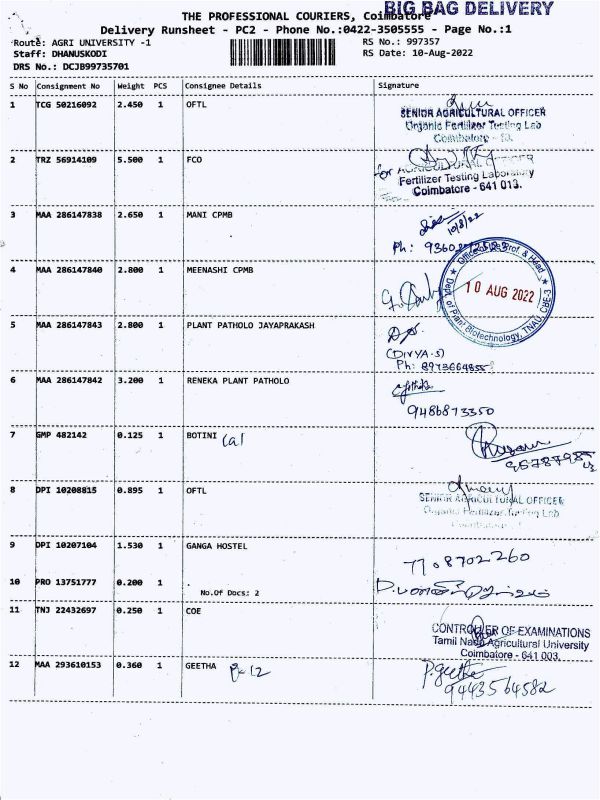 BIG BAG DELIVERY
THE PROFESSIONAL COURIERS, Coimbatore
Delivery Runsheet - PC2 - Phone No.:0422-3505555 - Page No.:1
Route: AGRI UNIVERSITY -1 RS No.: 997357
Staff: DHANUSKODI RS Date: 10-Aug-2022
DRS No.: DCJB99735701
S No Consignment No Weight PCS Consignee Details Signature
1 TCG 50216092 2.450 1 OFTL
SENIOR AGRICULTURAL OFFICER
Organic Fertilizer Testing Lab
Coimbatore
2 TRZ 56914109 5.500 1 FCO
for AGRICULTURAL OFFICER
Fertilizer Testing Laboratory
Coimbatore - 641 013.
3 MAA 286147838 2.650 1 MANI CPMB
10/8/22
Ph: 9360
4 MAA 286147840 2.800 1 MEENASHI CPMB
Office of the Prof. & Head
10 AUG 2022
Dept. of Plant Biotechnology, TNAU, CBE-3
5 MAA 286147843 2.800 1 PLANT PATHOLO JAYAPRAKASH
(DIVYA.S)
Ph: 8973664855
6 MAA 286147842 3.200 1 RENEKA PLANT PATHOLO
9486873350
7 GMP 482142 0.125 1 BOTINI (a)
8 DPI 10208815 0.895 1 OFTL
SENIOR AGRICULTURAL OFFICER
Organic Fertilizer Testing Lab
9 DPI 10207104 1.530 1 GANGA HOSTEL
7708702260
10 PRO 13751777 0.200 1
No.Of Docs: 2
11 TNJ 22432697 0.250 1 COE
CONTROLLER OF EXAMINATIONS
Tamil Nadu Agricultural University
Coimbatore - 641 003.
12 MAA 293610153 0.360 1 GEETHA
P.geetha
9443564582